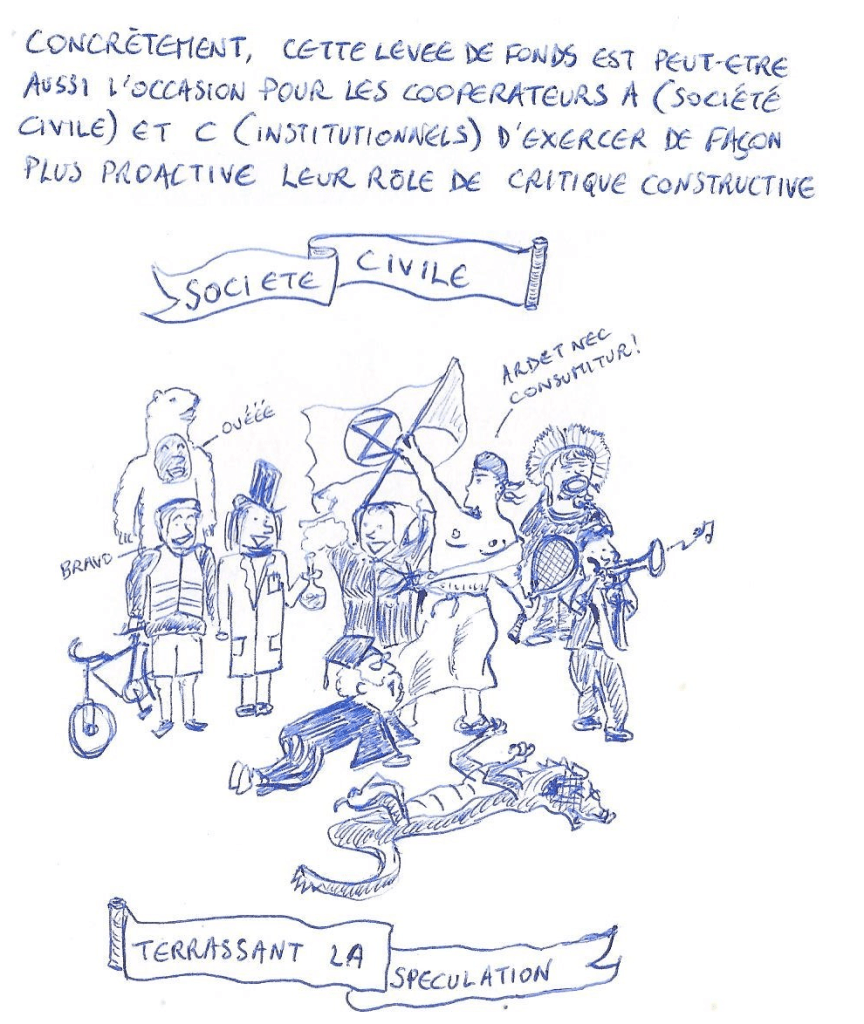 CONCRÈTEMENT, CETTE LEVEE DE FONDS EST PEUT-ETRE
AUSSI L'OCCASION POUR LES COOPERATEURS A (SOCIÉTÉ
CIVILE) ET C (INSTITUTIONNELS) D'EXERCER DE FAÇON
PLUS PROACTIVE LEUR RÔLE DE CRITIQUE CONSTRUCTIVE
SOCIETE CIVILE
ARDET NEC
CONSUMITUR!
OUÉËË
BRAVO
TERRASSANT LA
SPECULATION